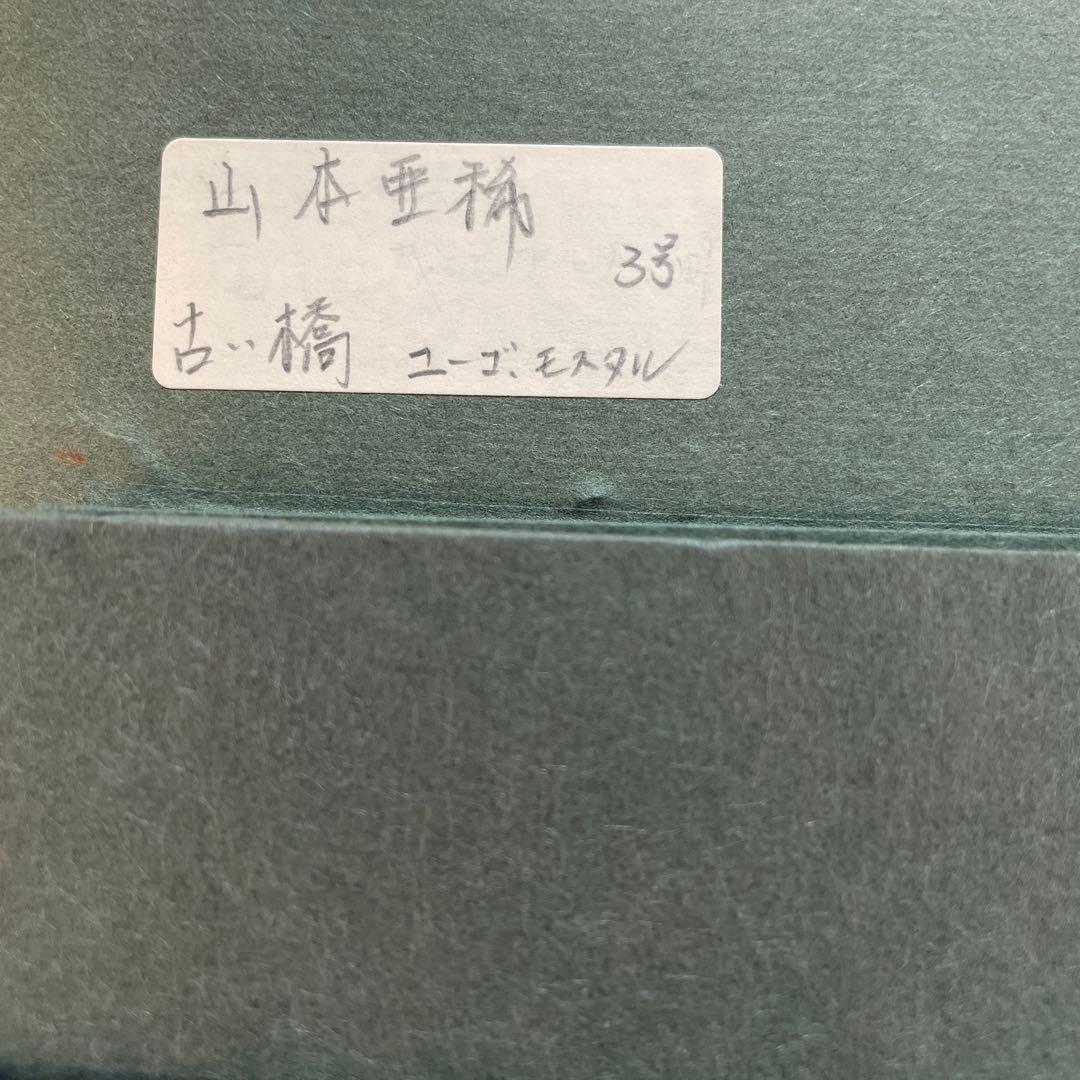 山本亜稀
3号
古い橋 ユーゴ、モスタル